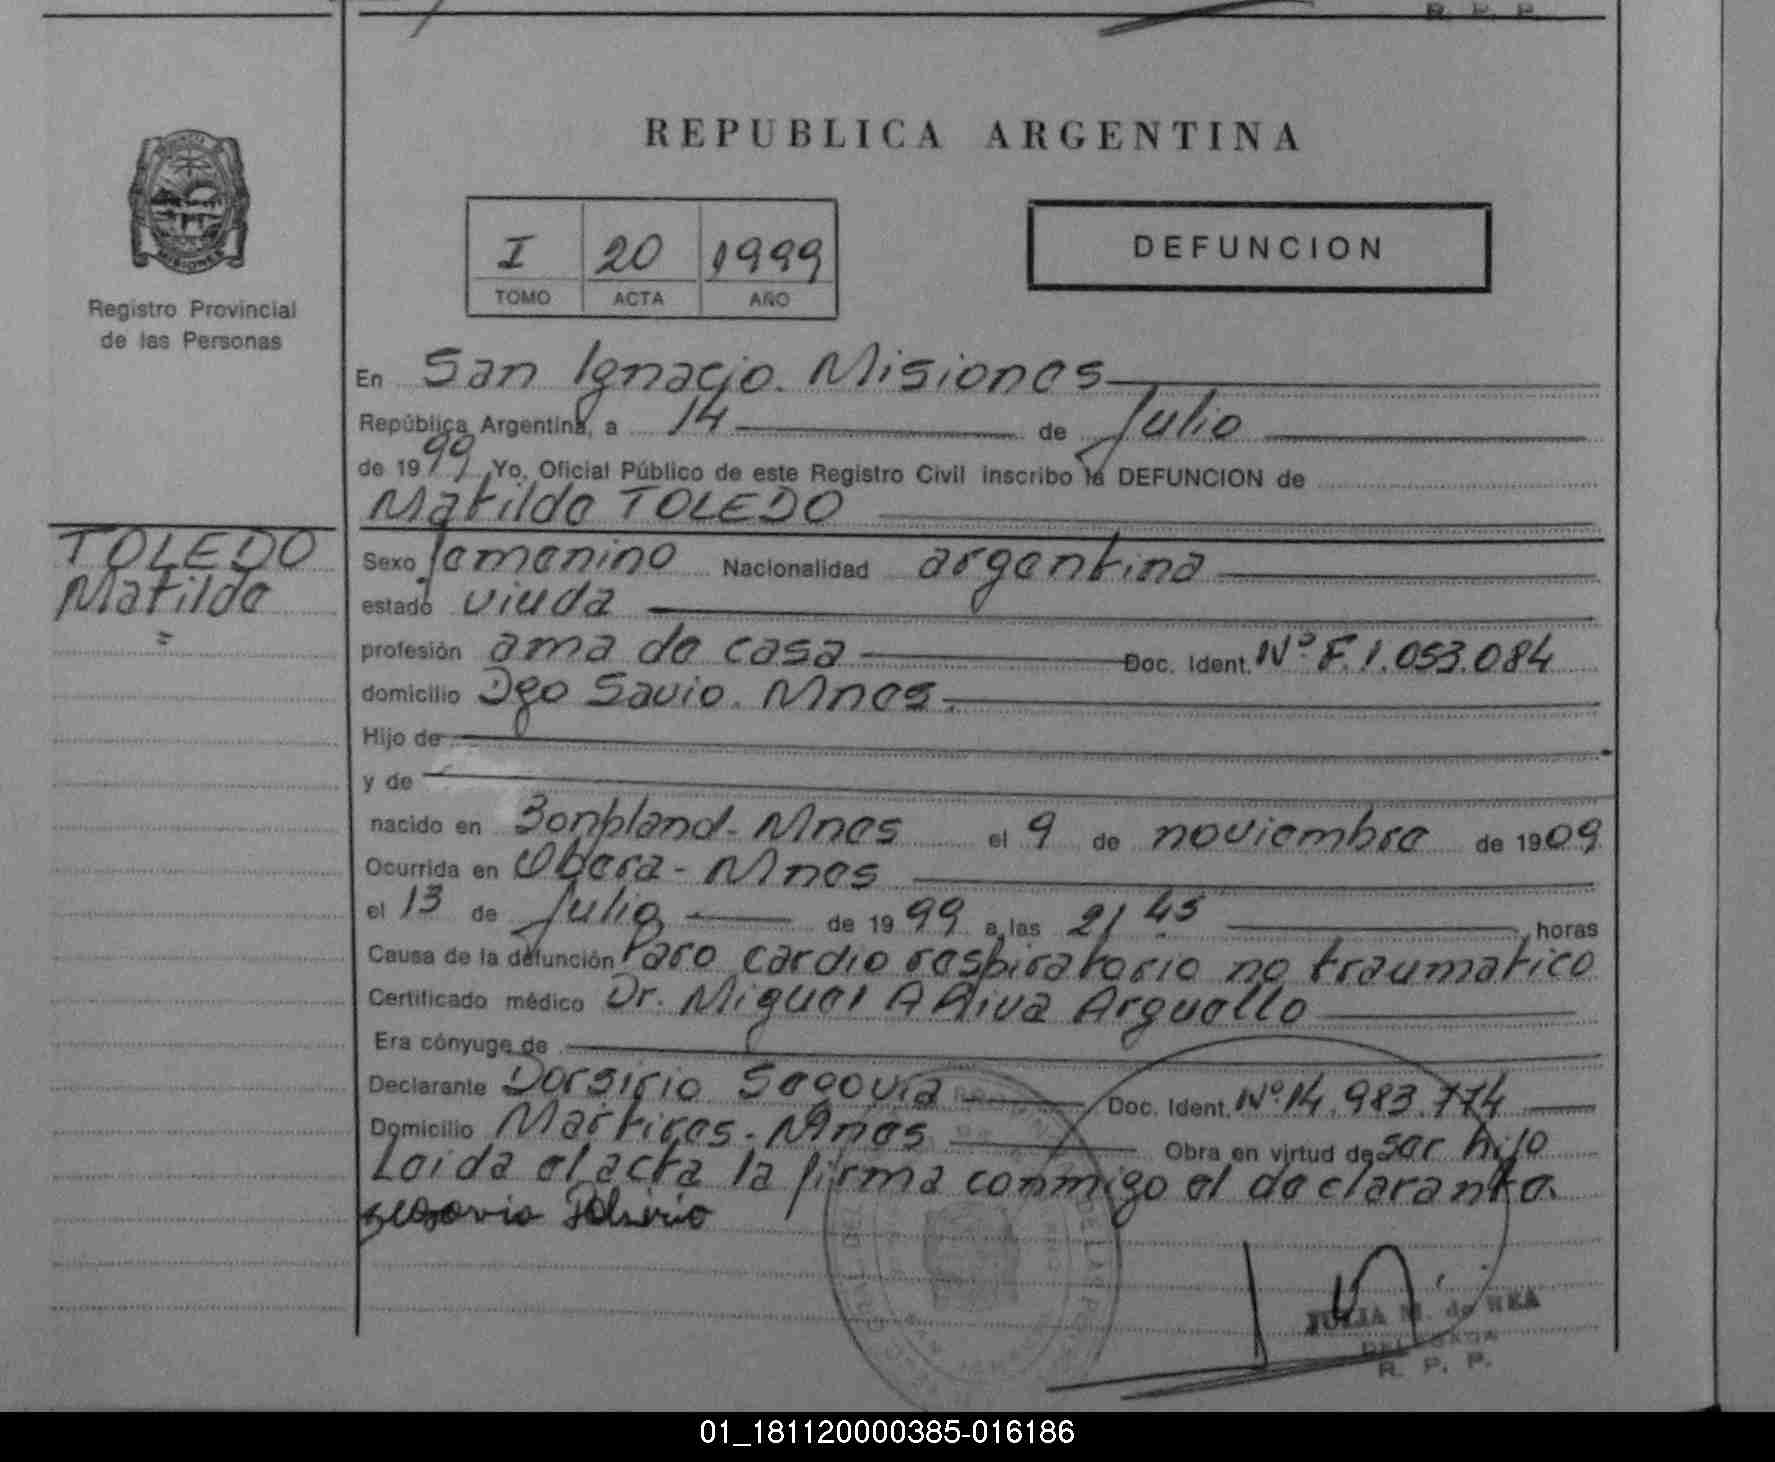 R. P. P.
REPUBLICA ARGENTINA
MISIONES
Registro Provincial
de las Personas
I 20 1999
TOMO ACTA AÑO
DEFUNCION
En San Ignacio. Misiones
República Argentina, a 14 de Julio
de 1999, Yo, Oficial Público de este Registro Civil inscribo la DEFUNCION de
Matilde TOLEDO
TOLEDO
Matilde
Sexo femenino Nacionalidad argentina
estado viuda
profesión ama de casa Doc. Ident. Nº F.1.053.084
domicilio Dgo Savio. Mnes.
Hijo de
y de
nacido en Bonpland - Mnes el 9 de noviembre de 1909
Ocurrida en Obera - Mnes
el 13 de Julio de 1999 a las 21 45 horas
Causa de la defunción Paro cardio respiratorio no traumatico
Certificado médico Dr. Miguel A Riva Arguello
Era cónyuge de
Declarante Dorsirio Segovia Doc. Ident. Nº 14.983.774
Domicilio Martires - Mnes Obra en virtud de ser hijo
Leida el acta la firma conmigo el declarante.
segovia
JULIA M. de
R. P. P.
01_181120000385-016186